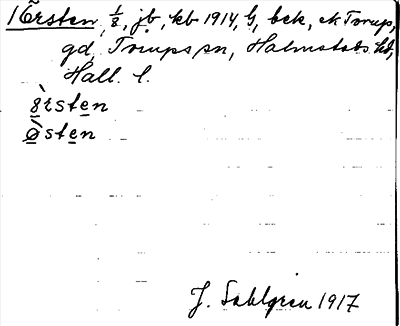 1 Ersten, 1/8, jb, kb 1914, G, bek, ek Torup,
gd, Torups sn, Halmstads hd,
Hall. l.
ö̀rsten
ø̀sten
J. Sahlgren 1917